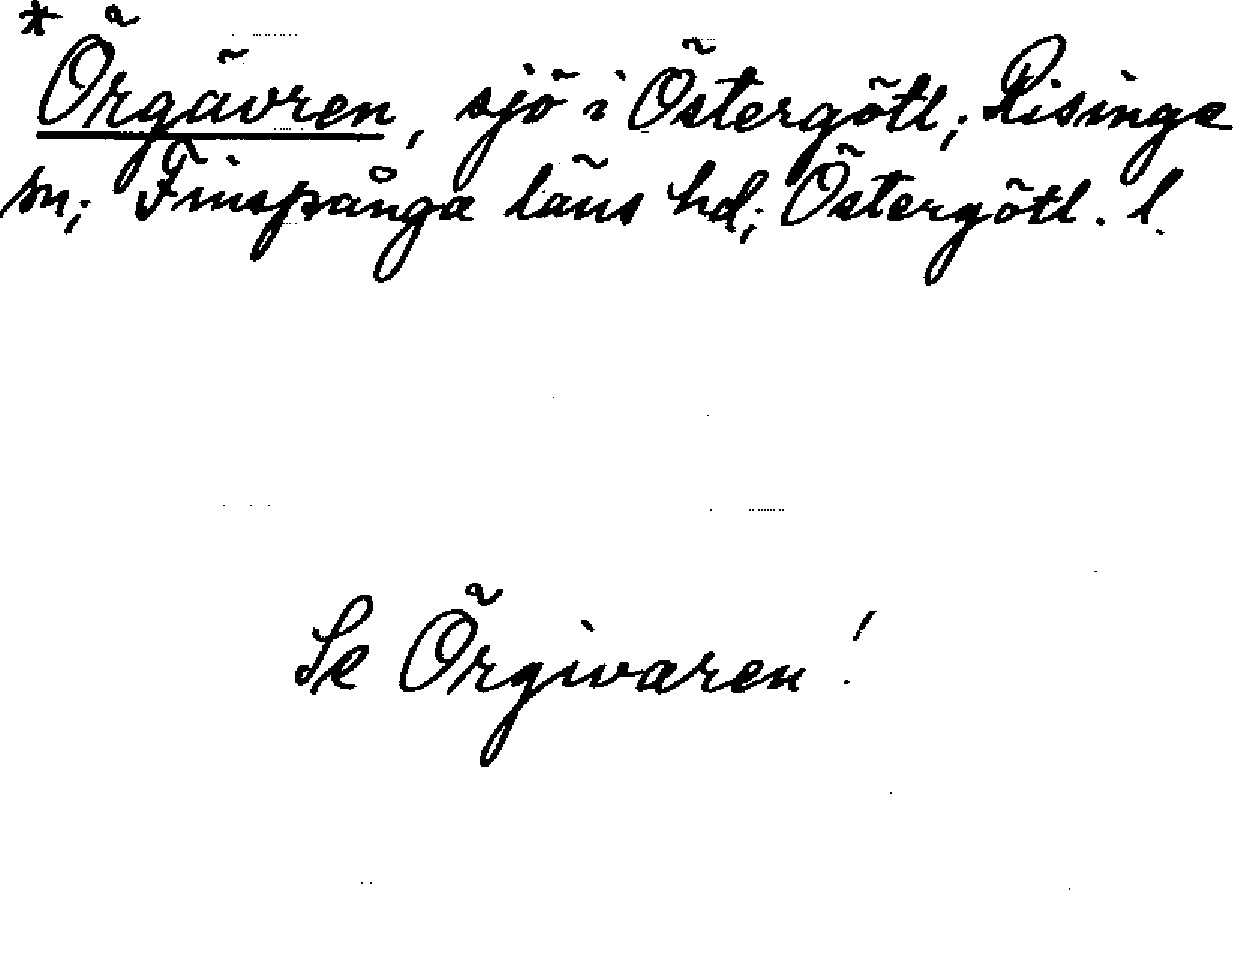 *Örgävren, sjö i Östergötl; Risinge
sn; Finspånga läns hd; Östergötl. l.
Se Örgivaren!